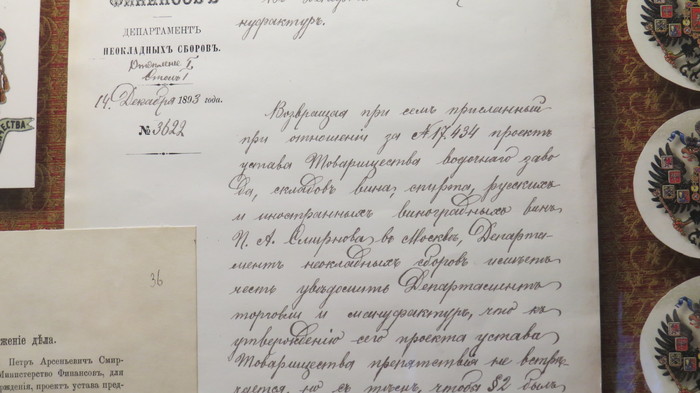 ФИНАНСОВЪ
ДЕПАРТАМЕНТЪ
НЕОКЛАДНЫХЪ СБОРОВЪ.
Отделение I
Столъ 1
14 Декабря 1893 года.
№ 3622
нуфактуръ.
Возвращая при семъ присланный
при отношенiи за № 17.434 проектъ
устава Товарищества водочнаго заво
да, складовъ вина, спирта, русскихъ
и иностранныхъ виноградныхъ винъ
П. А. Смирнова, въ Москвѣ, Департа-
ментъ неокладныхъ сборовъ имѣетъ
честь увѣдомить Департаментъ
торговли и мануфактуръ, что къ
утвержденiю сего проекта устава
Товарищества препятствiя не встрѣ-
чается, но съ тѣмъ, чтобы §2 былъ
36
женіе дѣла.
Петръ Арсеньевичъ Смир-
Министерство Финансовъ, для
ержденія, проектъ устава пред-
ЕСТВА